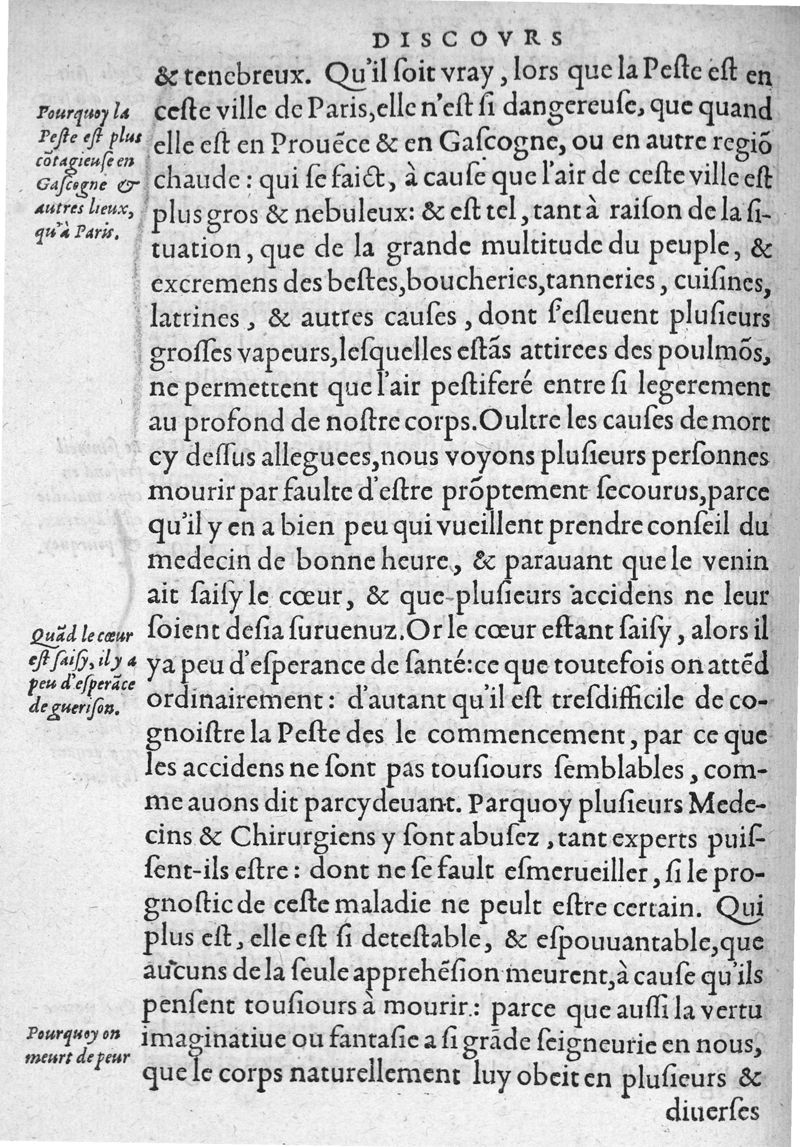 DISCOVRS
& tenebreux. Qu'il ſoit vray, lors que la Peſte eſt en
Pourquoy la
Peſte eſt plus
cōtagieuſe en
Gaſcogne &
autres lieux,
qu'à Paris.
ceſte ville de Paris, elle n'eſt ſi dangereuſe, que quand
elle eſt en Prouēce & en Gaſcogne, ou en autre regiō
chaude : qui ſe faict, à cauſe que l'air de ceſte ville eſt
plus gros & nebuleux: & eſt tel, tant à raiſon de la ſi-
tuation, que de la grande multitude du peuple, &
excremens des beſtes, boucheries, tanneries, cuiſines,
latrines, & autres cauſes, dont ſ'eſleuent pluſieurs
groſſes vapeurs, leſquelles eſtās attirees des poulmōs,
ne permettent que l'air peſtiferé entre ſi legerement
au profond de noſtre corps. Oultre les cauſes de mort
cy deſſus alleguees, nous voyons pluſieurs perſonnes
mourir par faulte d'eſtre prōptement ſecourus, parce
qu'il y en a bien peu qui vueillent prendre conſeil du
medecin de bonne heure, & parauant que le venin
ait ſaiſy le cœur, & que pluſieurs accidens ne leur
Quād le cœur
eſt ſaiſy, il y a
peu d'eſperāce
de gueriſon.
ſoient deſia ſuruenuz. Or le cœur eſtant ſaiſy, alors il
ya peu d'eſperance de ſanté: ce que toutefois on attēd
ordinairement : d'autant qu'il eſt treſdifficile de co-
gnoiſtre la Peſte des le commencement, par ce que
les accidens ne ſont pas touſiours ſemblables, com-
me auons dit parcydeuant. Parquoy pluſieurs Mede-
cins & Chirurgiens y ſont abuſez, tant experts puiſ-
ſent-ils eſtre : dont ne ſe fault eſmerueiller, ſi le pro-
gnoſtic de ceſte maladie ne peult eſtre certain. Qui
plus eſt, elle eſt ſi deteſtable, & eſpouuantable, que
aucuns de la ſeule apprehēſion meurent, à cauſe qu'ils
penſent touſiours à mourir : parce que auſſi la vertu
Pourquoy on
meurt de peur
imaginatiue ou fantaſie a ſi grāde ſeigneurie en nous,
que le corps naturellement luy obeit en pluſieurs &
diuerſes